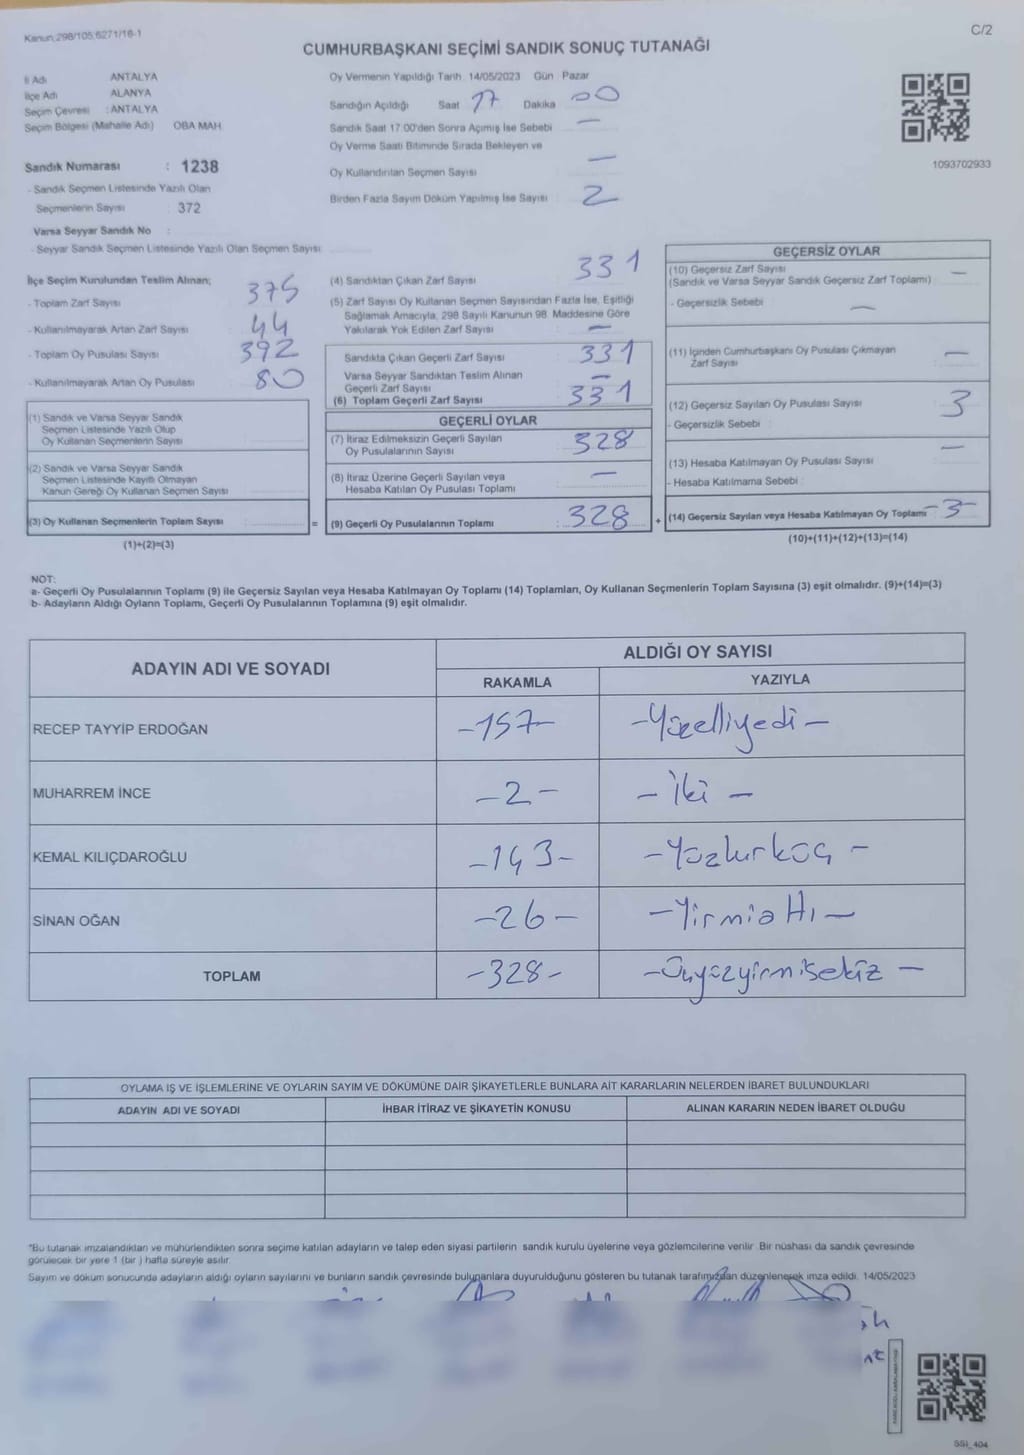 Kanun:298/105,6271/16-1
C/2
CUMHURBAŞKANI SEÇİMİ SANDIK SONUÇ TUTANAĞI
İl Adı ANTALYA
İlçe Adı ALANYA
Seçim Çevresi : ANTALYA
Seçim Bölgesi (Mahalle Adı) OBA MAH
Sandık Numarası : 1238
- Sandık Seçmen Listesinde Yazılı Olan
Seçmenlerin Sayısı : 372
Varsa Seyyar Sandık No :
- Seyyar Sandık Seçmen Listesinde Yazılı Olan Seçmen Sayısı
Oy Vermenin Yapıldığı Tarih 14/05/2023 Gün Pazar
Sandığın Açıldığı Saat 17 Dakika 00
Sandık Saat 17:00'den Sonra Açımış İse Sebebi —
Oy Verme Saati Bitiminde Sırada Bekleyen ve
Oy Kullandırılan Seçmen Sayısı —
Birden Fazla Sayım Döküm Yapılmış İse Sayısı : 2
1093702933
İlçe Seçim Kurulundan Teslim Alınan;
- Toplam Zarf Sayısı 375
- Kullanılmayarak Artan Zarf Sayısı 44
- Toplam Oy Pusulası Sayısı 392
- Kullanılmayarak Artan Oy Pusulası 80
(1) Sandık ve Varsa Seyyar Sandık
Seçmen Listesinde Yazılı Olup
Oy Kullanan Seçmenlerin Sayısı
(2) Sandık ve Varsa Seyyar Sandık
Seçmen Listesinde Kayıtlı Olmayan
Kanun Gereği Oy Kullanan Seçmen Sayısı
(3) Oy Kullanan Seçmenlerin Toplam Sayısı : =
(1)+(2)=(3)
(4) Sandıktan Çıkan Zarf Sayısı 331
(5) Zarf Sayısı Oy Kullanan Seçmen Sayısından Fazla İse, Eşitliği
Sağlamak Amacıyla, 298 Sayılı Kanunun 98. Maddesine Göre
Yakılarak Yok Edilen Zarf Sayısı —
Sandıkta Çıkan Geçerli Zarf Sayısı 331
Varsa Seyyar Sandıktan Teslim Alınan
Geçerli Zarf Sayısı —
(6) Toplam Geçerli Zarf Sayısı 331
GEÇERLİ OYLAR
(7) İtiraz Edilmeksizin Geçerli Sayılan
Oy Pusulalarının Sayısı 328
(8) İtiraz Üzerine Geçerli Sayılan veya
Hesaba Katılan Oy Pusulası Toplamı —
(9) Geçerli Oy Pusulalarının Toplamı : 328 +
GEÇERSİZ OYLAR
(10) Geçersiz Zarf Sayısı
(Sandık ve Varsa Seyyar Sandık Geçersiz Zarf Toplamı) —
- Geçersizlik Sebebi —
(11) İçinden Cumhurbaşkanı Oy Pusulası Çıkmayan
Zarf Sayısı —
(12) Geçersiz Sayılan Oy Pusulası Sayısı 3
- Geçersizlik Sebebi :
(13) Hesaba Katılmayan Oy Pusulası Sayısı —
- Hesaba Katılmama Sebebi :
(14) Geçersiz Sayılan veya Hesaba Katılmayan Oy Toplamı -3-
(10)+(11)+(12)+(13)=(14)
NOT:
a- Geçerli Oy Pusulalarının Toplamı (9) ile Geçersiz Sayılan veya Hesaba Katılmayan Oy Toplamı (14) Toplamları, Oy Kullanan Seçmenlerin Toplam Sayısına (3) eşit olmalıdır. (9)+(14)=(3)
b- Adayların Aldığı Oyların Toplamı, Geçerli Oy Pusulalarının Toplamına (9) eşit olmalıdır.
ADAYIN ADI VE SOYADI
ALDIĞI OY SAYISI
RAKAMLA YAZIYLA
RECEP TAYYİP ERDOĞAN -157- -Yüzelliyedi-
MUHARREM İNCE -2- -İki-
KEMAL KILIÇDAROĞLU -143- -Yüzkırküç-
SİNAN OĞAN -26- -Yirmialtı-
TOPLAM -328- -Üçyüzyirmisekiz-
OYLAMA İŞ VE İŞLEMLERİNE VE OYLARIN SAYIM VE DÖKÜMÜNE DAİR ŞİKAYETLERLE BUNLARA AİT KARARLARIN NELERDEN İBARET BULUNDUKLARI
ADAYIN ADI VE SOYADI İHBAR İTİRAZ VE ŞİKAYETİN KONUSU ALINAN KARARIN NEDEN İBARET OLDUĞU
*Bu tutanak imzalandıktan ve mühürlendikten sonra seçime katılan adayların ve talep eden siyasi partilerin sandık kurulu üyelerine veya gözlemcilerine verilir. Bir nüshası da sandık çevresinde
görülecek bir yere 1 (bir) hafta süreyle asılır.
Sayım ve döküm sonucunda adayların aldığı oyların sayılarını ve bunların sandık çevresinde bulunanlara duyurulduğunu gösteren bu tutanak tarafımızdan düzenlenerek imza edildi. 14/05/2023
SSI_404